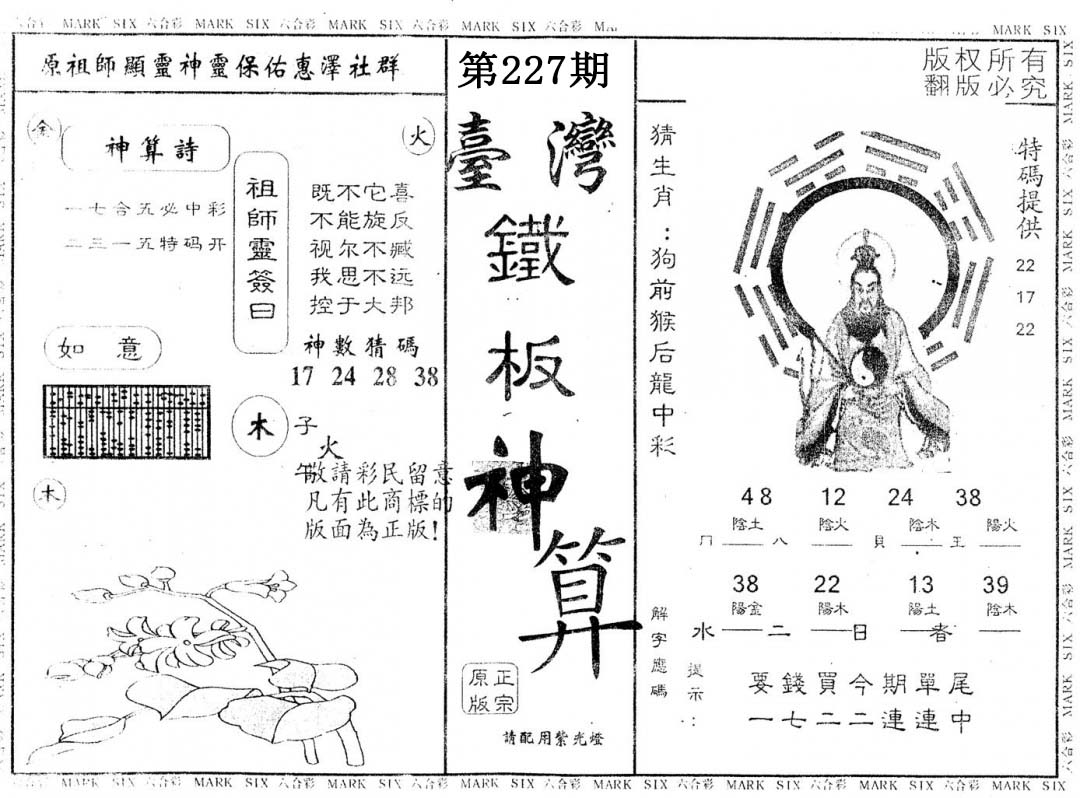 MARK SIX 六合彩 MARK SIX 六合彩 MARK SIX 六合彩 MARK SIX 六合彩
MARK SIX
原祖師顯靈神靈保佑惠澤社群
金
神算詩
火
一七合五必中彩
二三一五特码开
祖師靈簽曰
既不它喜
不能旋反
视尔不臧
我思不远
控于大邦
神數猜碼
17 24 28 38
如意
木
子
火
午
木
敬請彩民留意
凡有此商標的
版面為正版!
第227期
臺灣
鐵
板
神
算
正宗
原版
請配用紫光燈
版权所有
翻版必究
猜生肖:狗前猴后龍中彩
特碼提供
22
17
22
48 12 24 38
陰土 陰火 陰木 陽火
冂 八 貝 王
38 22 13 39
陽金 陽木 陽土 陰木
水 二 日 春
解字應碼
提示:
要錢買今期單尾
一七二二連連中
MARK SIX 六合彩 MARK SIX 六合彩 MARK SIX 六合彩 MARK SIX 六合彩 MARK SIX 六合彩 MARK SIX 六合彩 MARK SIX 六合彩 MARK SIX